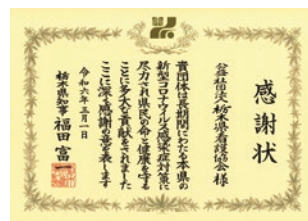 感謝状
公益社団法人栃木県看護協会様
貴団体は長期間にわたる本県の
新型コロナウイルス感染症対策に
尽力され県民の命と健康を守る
ことに多大な貢献をされました
ここに深く感謝の意を表します
令和六年三月一日
栃木県知事 福田富一